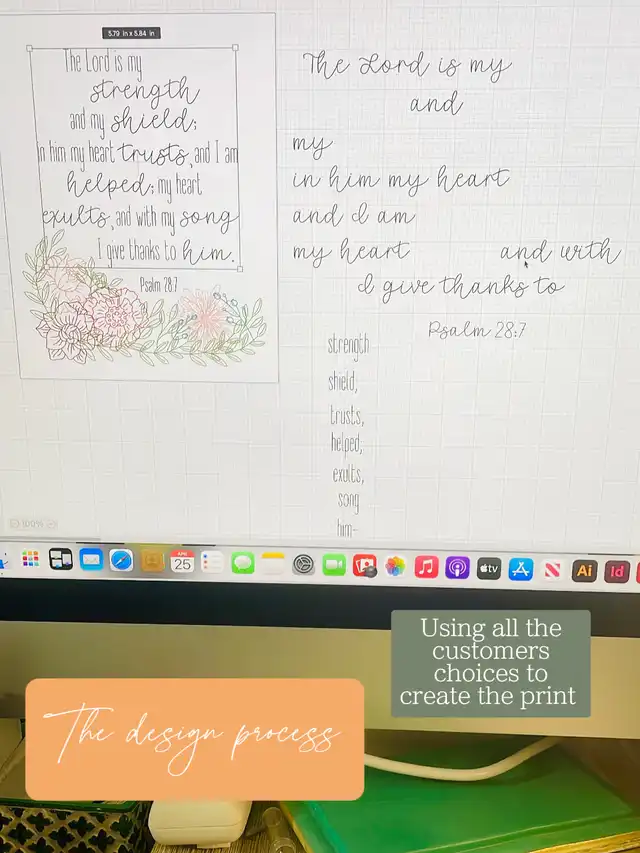 5.79 in x 5.84 in
The Lord is my
strength
and my shield;
in him my heart trusts, and I am
helped; my heart
exults, and with my song
I give thanks to him.
Psalm 28:7
The Lord is my
and
my
in him my heart
and I am
my heart and with
I give thanks to
Psalm 28:7
strength
shield,
trusts,
helped,
exults,
song
him-
100%
APR
25
tv
Ai
Id
Using all the
customers
choices to
create the print
The design process